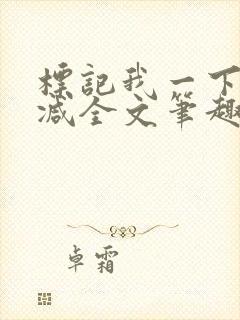 標記我一下
减全文筆趣
卓霜